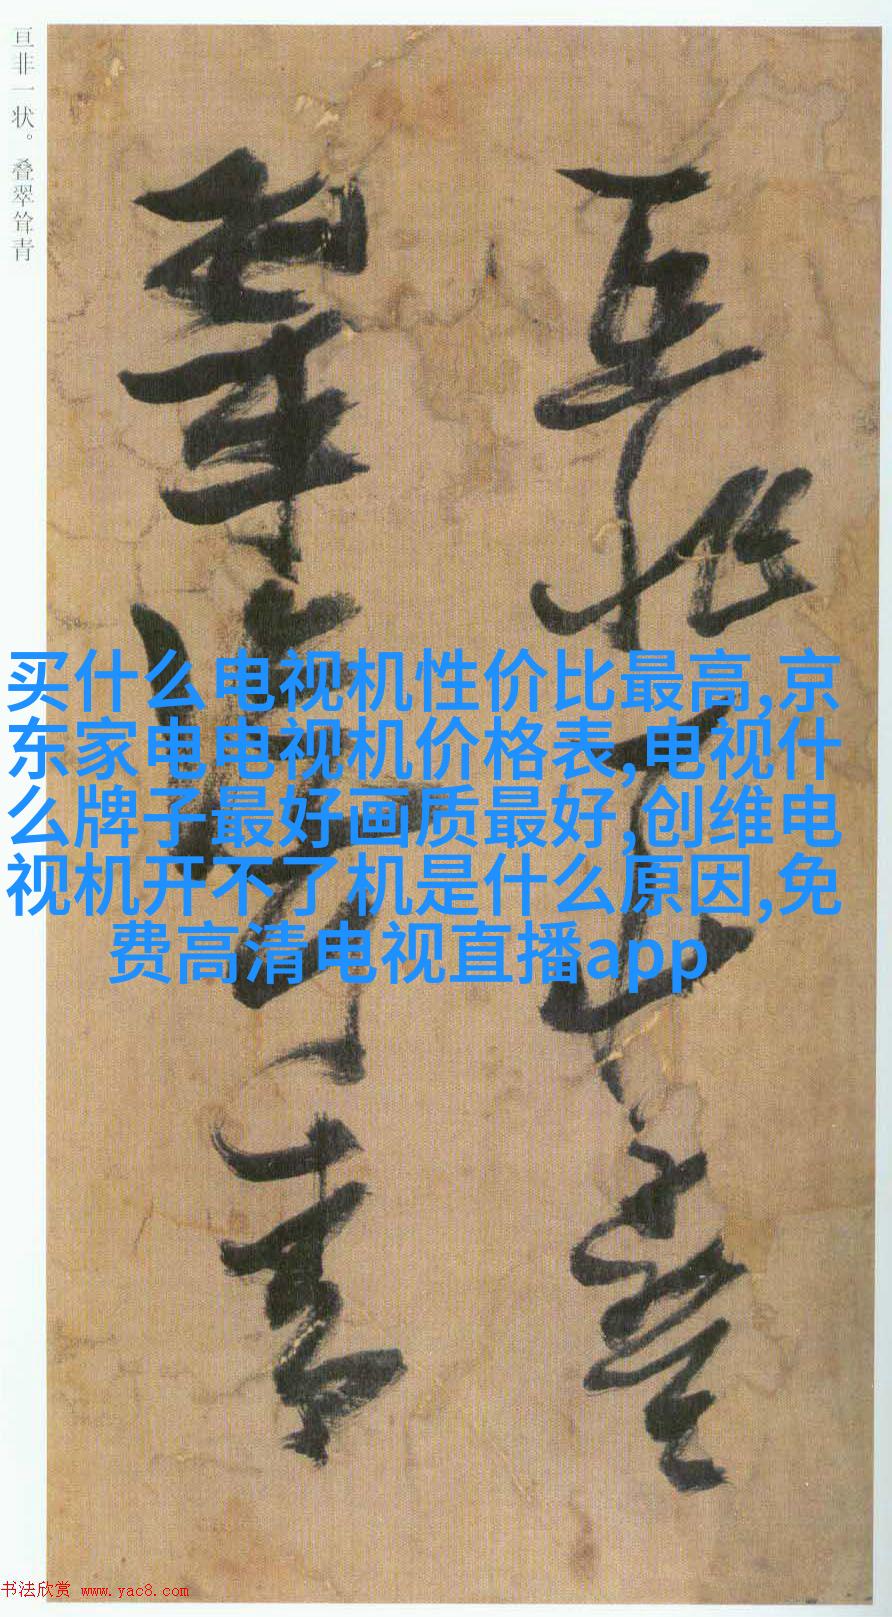 亘非一状。叠翠耸青
买什么电视机性价比最高,京
东家电电视机价格表,电视什
么牌子最好画质最好,创维电
视机开不了机是什么原因,免
费高清电视直播app
书法欣赏 www.yac8.com